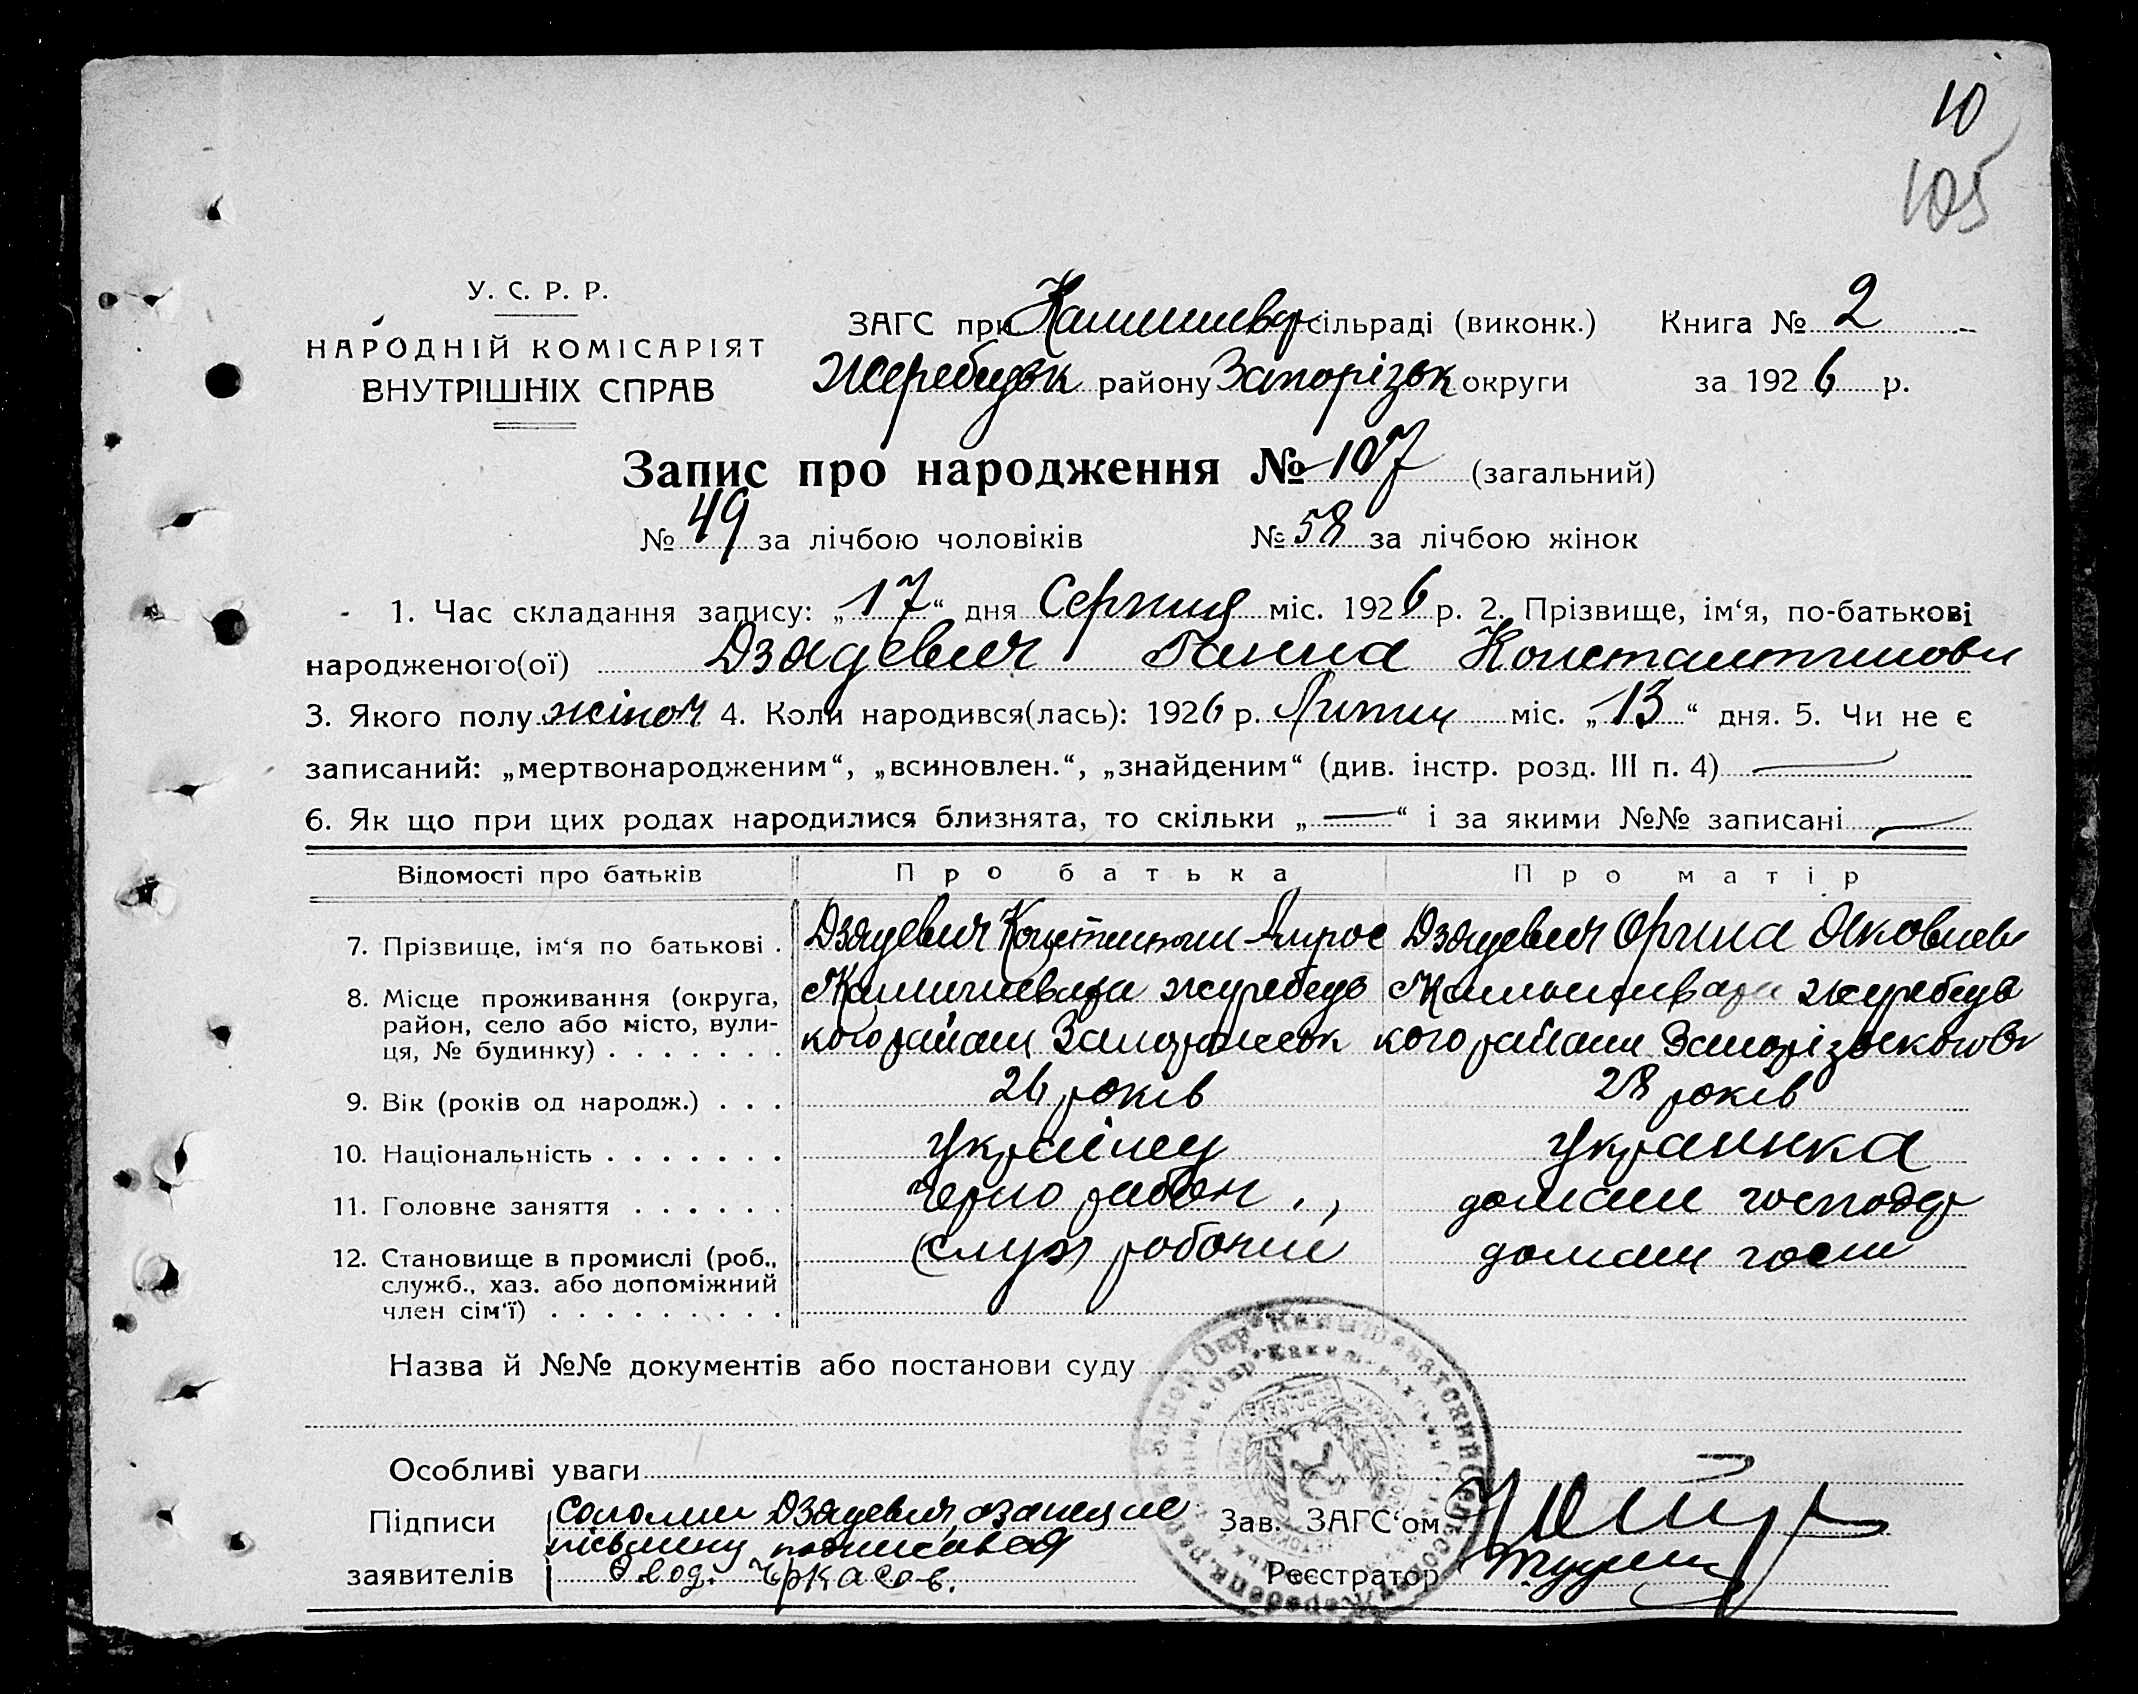 10
105
У. С. Р. Р.
НАРОДНІЙ КОМІСАРІЯТ
ВНУТРІШНІХ СПРАВ
ЗАГС при Камишевар сільраді (виконк.) Книга № 2
Жеребецьк району Запорізьк округи за 1926 р.
Запис про народження № 107 (загальний)
№ 49 за лічбою чоловіків № 58 за лічбою жінок
1. Час складання запису: „17“ дня Серпня міс. 1926 р. 2. Прізвище, ім‘я, по-батькові
народженого(ої) Дзядевич Ганна Константиновн
3. Якого полу жіноч 4. Коли народився(лась): 1926 р. Липня міс. „13“ дня. 5. Чи не є
записаний: „мертвонародженим“, „всиновлен.“, „знайденим“ (див. інстр. розд. III п. 4) —
6. Як що при цих родах народилися близнята, то скільки „—“ і за якими №№ записані —
Відомості про батьків Про батька Про матір
7. Прізвище, ім‘я по батькові . Дзядевич Константин Дзядевич Орина Яковлев
8. Місце проживання (округа, район, село або місто, вулиця, № будинку) . . . . . . .
кого району кого району
9. Вік (років од народж.) . . . 26 років 28 років
10. Національність . . . . . . . українец украинка
11. Головне заняття . . . . . . чернорабоч домашн господар
12. Становище в промислі (роб., служб., хаз. або допоміжний член сім‘ї) . . . . . . . . . робочий домашн госп
Назва й №№ документів або постанови суду
Особливі уваги
Підписи Соломии Дзядевич
заявителів
Черкасов.
Зав. ЗАГС‘ом
Реєстратор